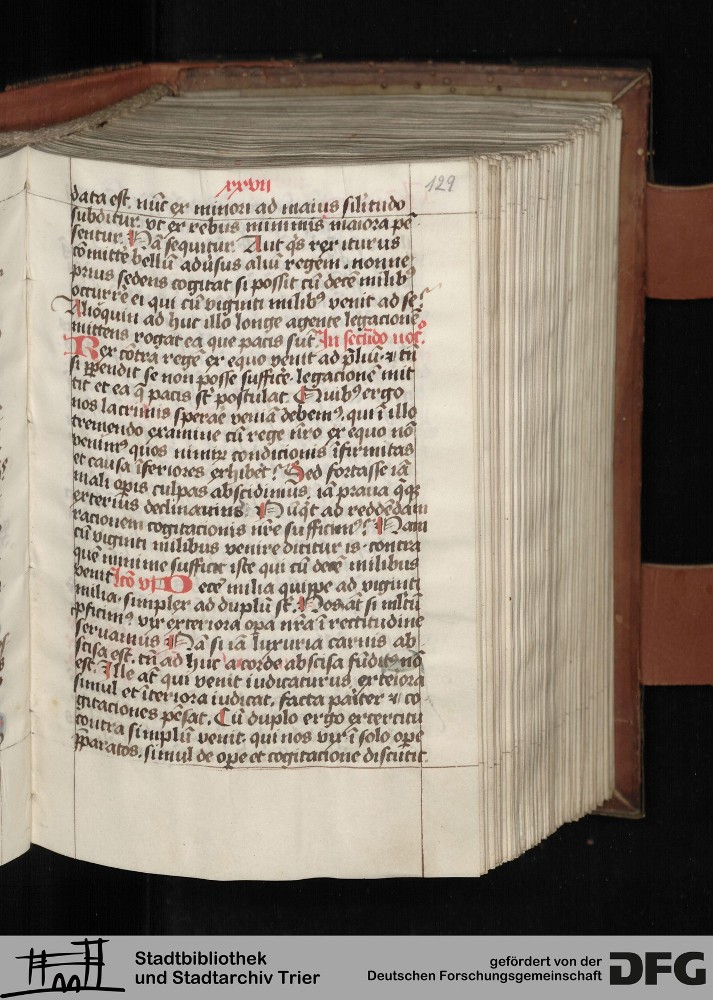 xxvii
129
data est. nūc ex minori ad maius silitudo
subditur. vt ex rebus minimis maiora pē
sentur. Nā sequitur. Aut q̄s rex iturus
cōmitte bellū adūsus aliū regem. nonne
prius sedens cogitat si possit cū decē milibꝰ
occurre ei qui cū viginti milibꝰ venit ad se?
Alioquin ad huc illo longe agente legacionē
mittens rogat ea que pacis sūt. In secūdo noc̄
Rex cōtra regē ex equo venit ad p̄liū. ⁊ tn̄
si ꝑpendit se non posse suffice. legacionē mit
tit et ea q̄ pacis st̄ postulat. Quibꝰ ergo
nos lacrimis sperae veniā debemꝰ. qui ī illo
tremendo examine cū rege nr̄o ex equo nō
venimꝰ quos nimiꝝ condicionis īfirmitas
et causa īferiores exhibet? Sed fortasse iā
mali opis culpas abscidimus. iā praua q̄qꝫ
exterius declinauimꝰ. Nūq̄t ad reddendam
racionem cogitacionis nr̄e sufficimꝰ? Nam
cū viginti milibus venire dicitur is. contra
quē minime sufficit iste qui cū decē milibus
venit. lc̄o vi Decē milia quippe ad viginti
milia. simpler ad duplū st̄. Nos at̄ si mltū
ꝓficimꝰ. vix exteriora opa nr̄a ī rectitudine
seruamus. Nā si iā luxuria carnis ab
scisa est. tn̄ ad huc a corde abscisa fūditꝰ nō
est. Ille at̄ qui venit iudicaturus. exteiora
simul et īteriora iudicat. facta paiter ⁊ co
gitaciones pēsat. Cū duplo ergo exercitu
contra simplū venit. qui nos vix ī solo ope
p̄paratos. simul de ope et cogitacione discutit.
Stadtbibliothek
und Stadtarchiv Trier
gefördert von der
Deutschen Forschungsgemeinschaft
DFG